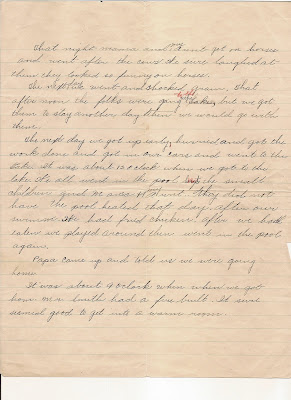 That night mama and Aunt got on horses
and went after the cows we sure laughed at
them they looked so funny on horses.
The next we went and shocked grain, that
after noon the folks were going to the lake, but we got
them to stay another day then we would go with
them.
The next day we got up early, hurried and got the
work done and got in our cars and went to the
lake. it was about 12 oclock when we got to the
lake. It's all went in the pool but the small
children and ma and Aunt they did not
have the pool heated that day. after our
swim we had fried chicken! after we had
eaten we played around then went in the pool
again.
Papa came up and told us we were going
home
It was about 9 oclock when when we got
home mr Smith had a fire built. It sure
semed good to get into a warm room.